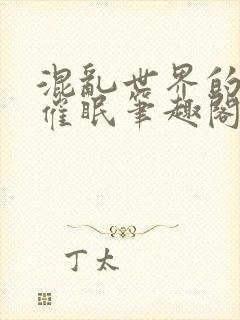 混亂世界的
催眠筆趣閣
丁太